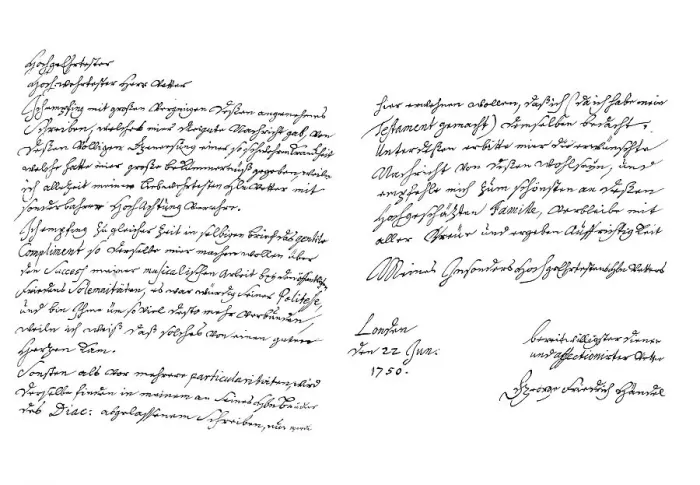 Hochgelehrtester
Hochwehrtester Herr Vetter
Ich empfing mit großen Vergnügen dessen angenehmes
Schreiben, welches mir die gute Nachricht gab, von
dessen Völligen Genesung einer so schweren Krankheit
welche hatte mir große bekümmernüß gegeben, weilen
ich allezeit meinen Liebwehrtesten HEn Vetter mit
sonderbahrer Hochachtung Verehre.
Ich empfing zu gleicher Zeit in selbigen brief das gentile
Compliment so derselbe mir machen wollen über
den Success meiner musicalischen Arbeit bey den
friedens Solemnitäten, es war würdig seiner Politesse,
und bin Ihme um so viel desto mehr Verbunden,
weilen ich weiß daß solches von einen guten
Hertzen kam.
Sonsten als Vor mehrere particularitäten, wird
derselbe finden in meinem an seines HEn Bruder
des Diac: abgelassenem Schreiben, nur eins
hier erwehnen wollen, daß ich (da ich habe mein
Testament gemacht) demselben bedacht.
Unterdessen erbitte mir die erwünschte
Nachricht von dessen Wohlseyn, und
empfehle mich zum schönsten an dessen
Hochgeschätzten Familie, Verbleibe mit
aller Treue und ergeben Auffrichtigkeit
Meines Insonders Hochgelehrtesten HEn Vetters
London
den 22 Jun.
1750.
bereitwilligster diener
und affectionirter Vetter
George Friedrich Händel